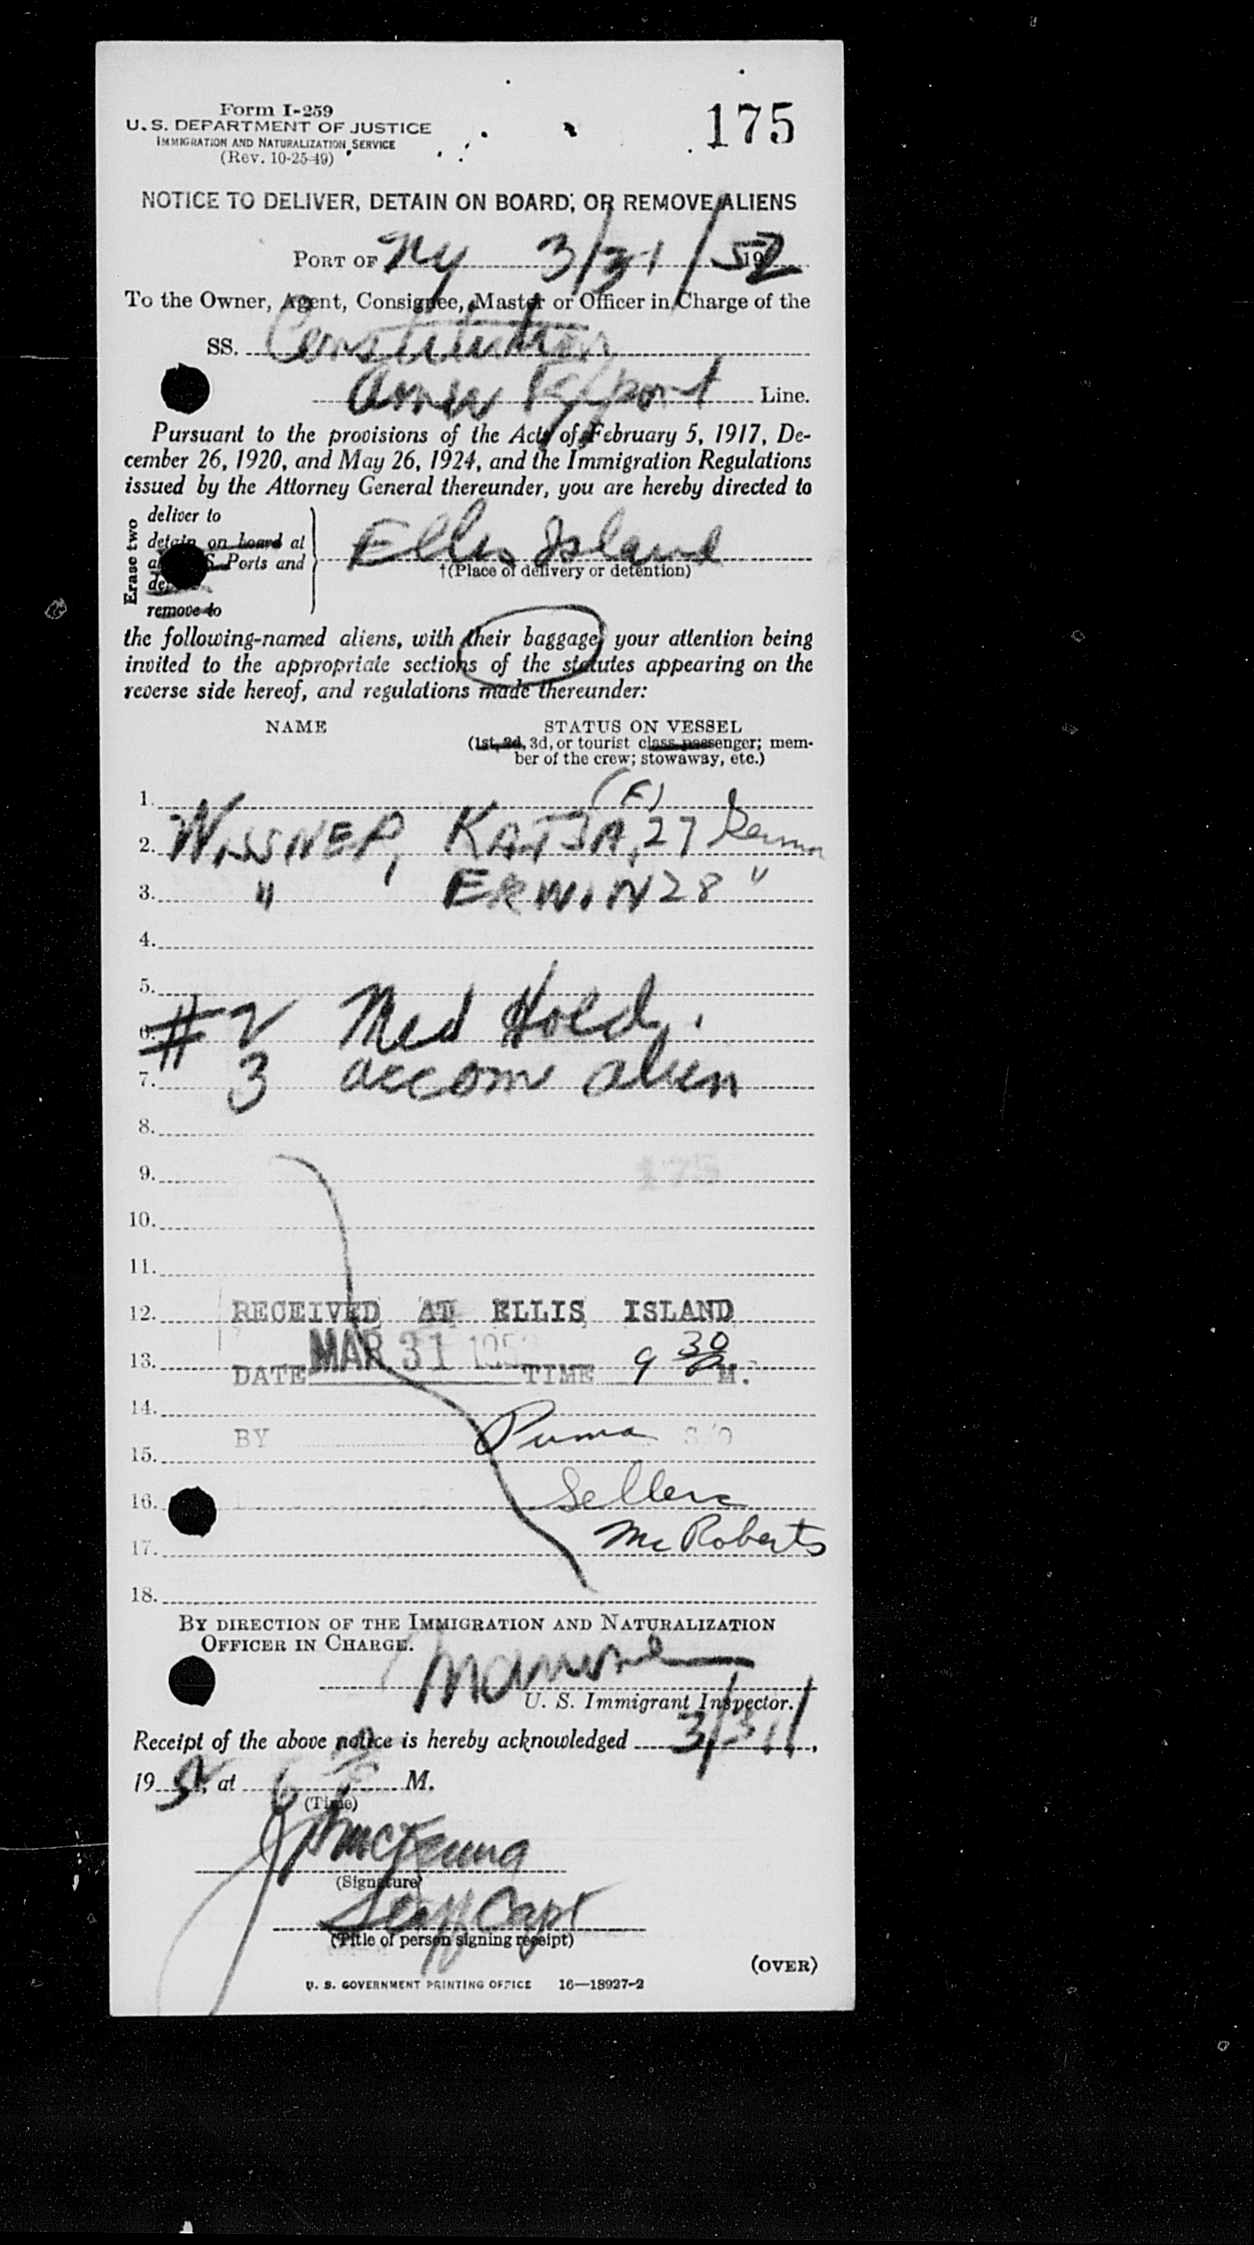 Form I-259
U. S. DEPARTMENT OF JUSTICE
IMMIGRATION AND NATURALIZATION SERVICE
(Rev. 10-25-49)
175
NOTICE TO DELIVER, DETAIN ON BOARD, OR REMOVE ALIENS
PORT OF NY 3/31/52 19
To the Owner, Agent, Consignee, Master or Officer in Charge of the
SS. Constitution
Amer Export Line.
Pursuant to the provisions of the Acts of February 5, 1917, De-
cember 26, 1920, and May 26, 1924, and the Immigration Regulations
issued by the Attorney General thereunder, you are hereby directed to
Erase two
deliver to
detain on board at
Ports and
remove to
Ellis Island
†(Place of delivery or detention)
the following-named aliens, with their baggage, your attention being
invited to the appropriate sections of the statutes appearing on the
reverse side hereof, and regulations made thereunder:
NAME STATUS ON VESSEL
(1st, 2d, 3d, or tourist class passenger; mem-
ber of the crew; stowaway, etc.)
1. (F)
2. WISSNER, KATJA, 27 German
3. " ERWIN 28 "
4.
5.
6. # 2 Med Hold.
7. 3 accom alien
8.
9. 175
10.
11.
12. RECEIVED AT ELLIS ISLAND
13. DATE MAR 31 195 TIME 9 30 A M.
14.
BY Puma S/O
15.
16. Sellers
17. McRoberts
18.
BY DIRECTION OF THE IMMIGRATION AND NATURALIZATION
OFFICER IN CHARGE.
U. S. Immigrant Inspector.
Receipt of the above notice is hereby acknowledged 3/31/,
19 52, at 6 M.
(Time)
(Signature)
Staff Capt
(Title of person signing receipt)
(OVER)
U. S. GOVERNMENT PRINTING OFFICE 16—18927-2